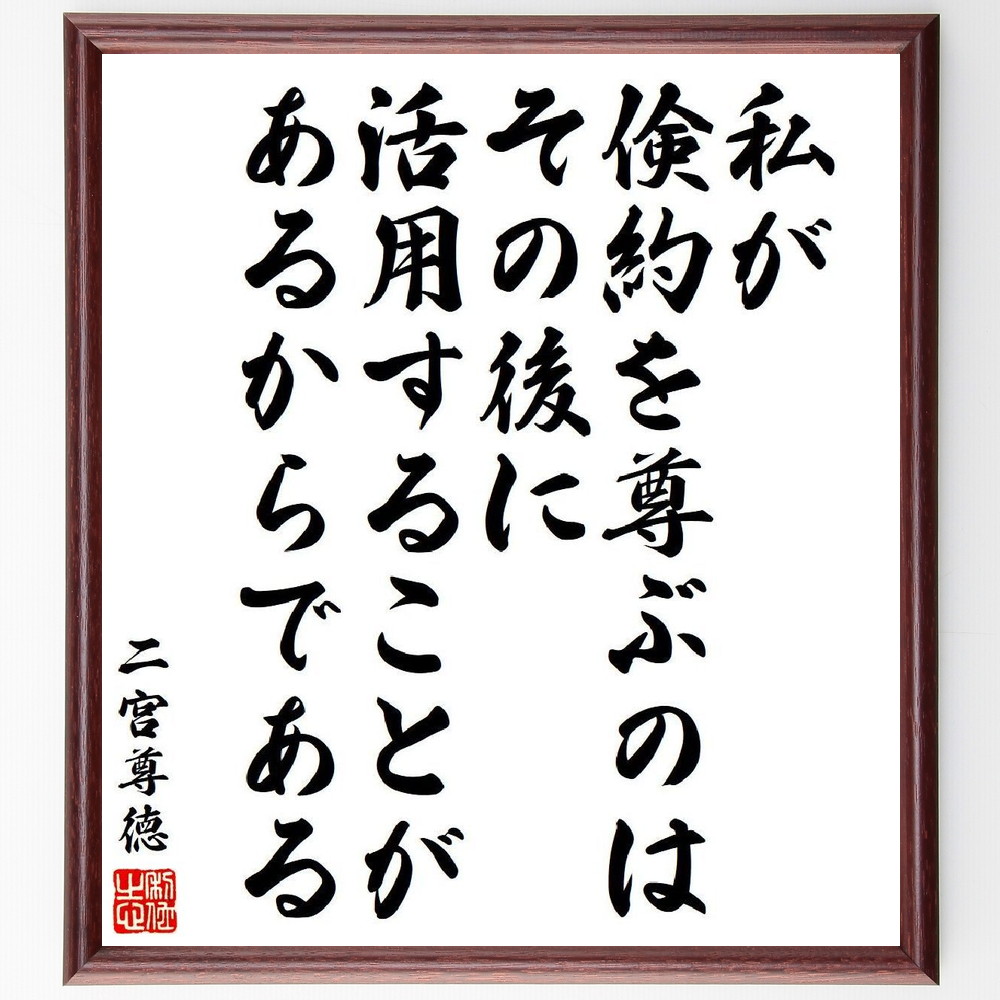 私が
倹約を尊ぶのは
その後に
活用することが
あるからである
二宮尊徳